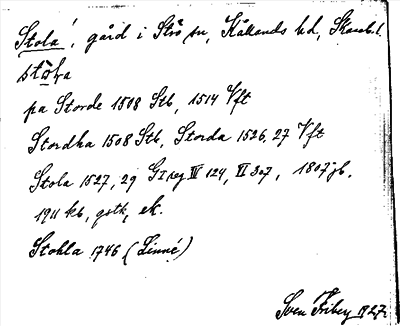 Stola, gård i Strö sn, Kållands hd, Skarab. l.
på Storde 1508 Stb, 1514 Vft
Stordha 1508 Stb, Storda 1526, 27 Vft
Stola 1527, 29 G I reg IV 124, VI 307, 1807 jb,
1911 kb, gstk, ek.
Stohla 1746 (Linné)
Sven Friberg 1927